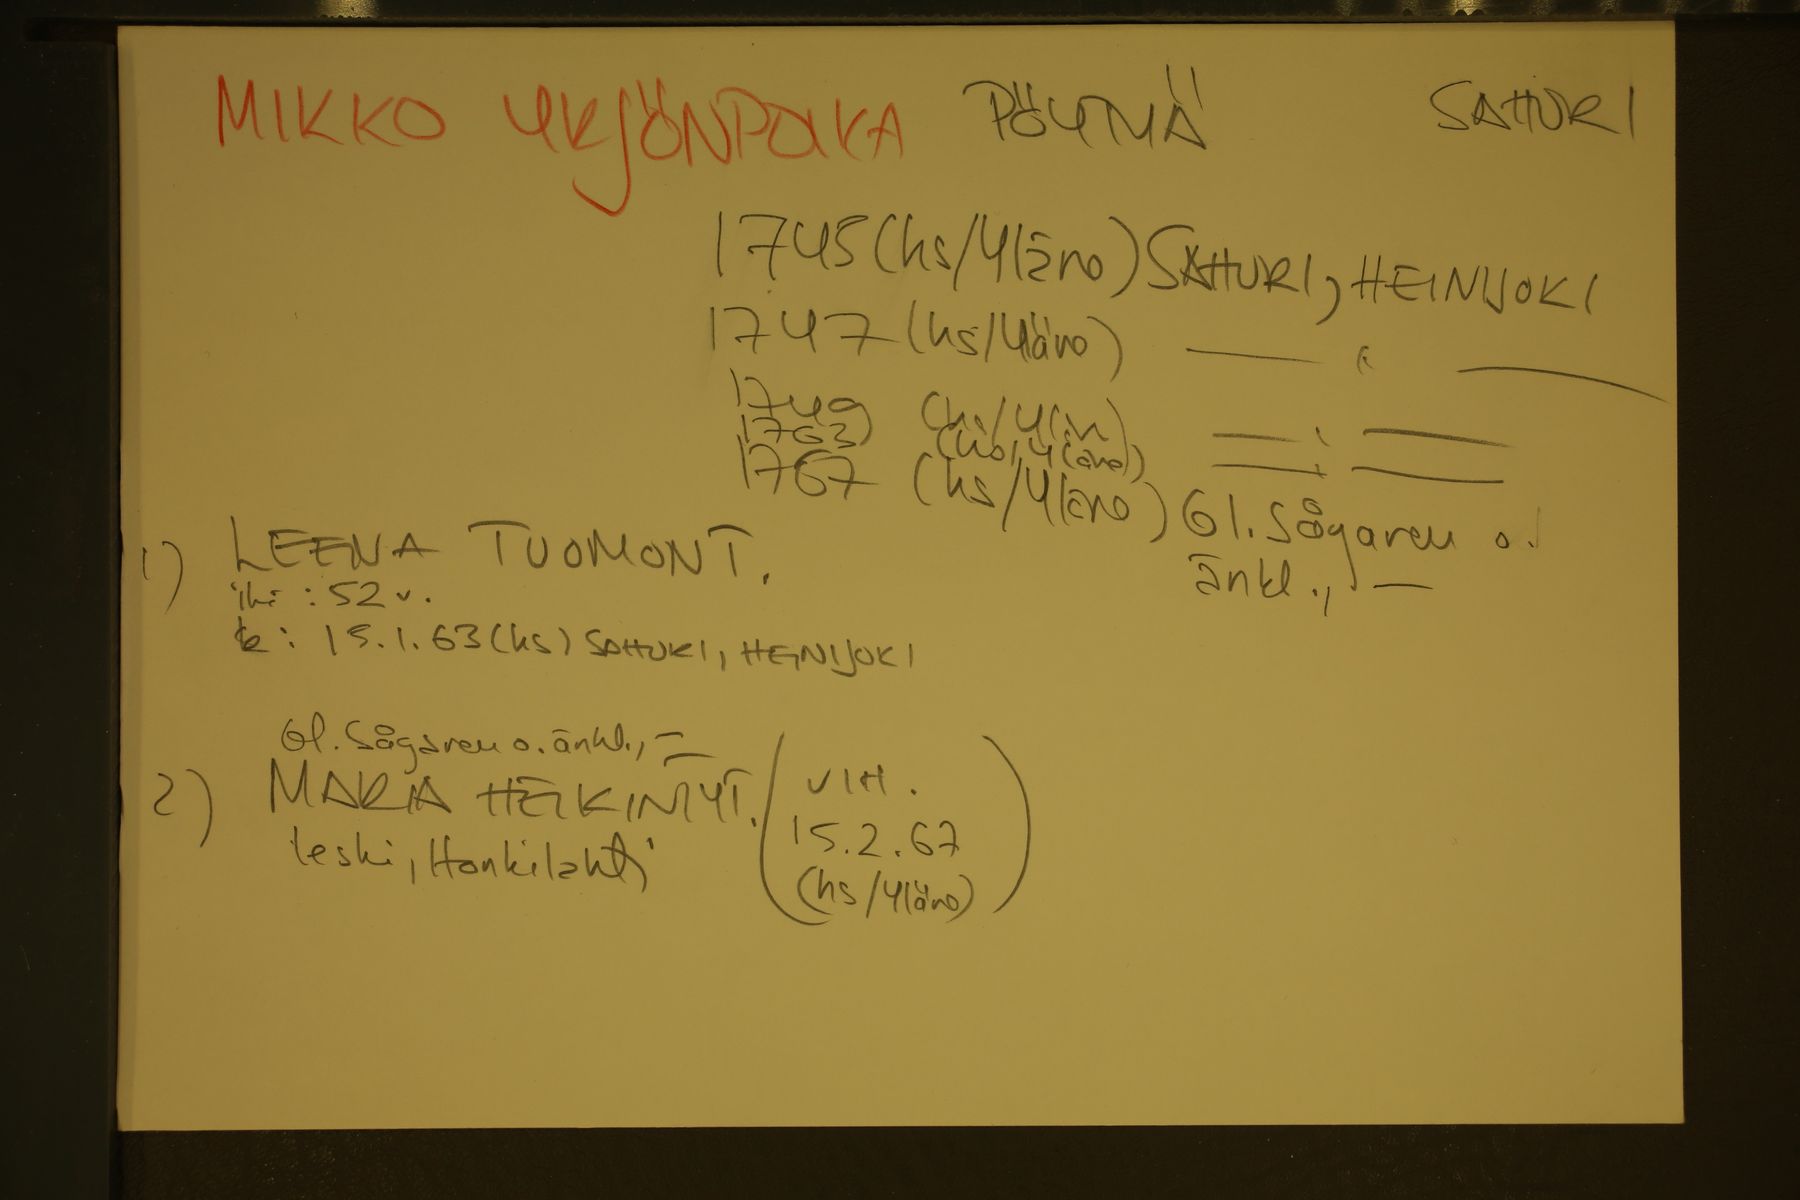 MIKKO YRJÖNPOIKA PÖYTYÄ SAHURI
1745 (hs/Yläno) SAHURI, HEINIJOKI
1747 (hs/Yläno) — " —
1749 (hs/Ylän) — " —
1763 (hs/Yläno) — " —
1767 (hs/Yläno) Gl. Sågaren o.
änkl., —
1) LEENA TUOMONT.
ikä: 52 v.
k: 15.1.63 (hs) SAHURI, HEINIJOKI
Gl. Sågaren o. änkl., —
2) MARIA HEIKINTYT.
leski, Honkilahti
(VIH.
15.2.67
(hs/Yläno))